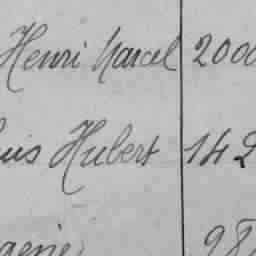 Henri Marcel 2000
uis Hubert 142
génie 98